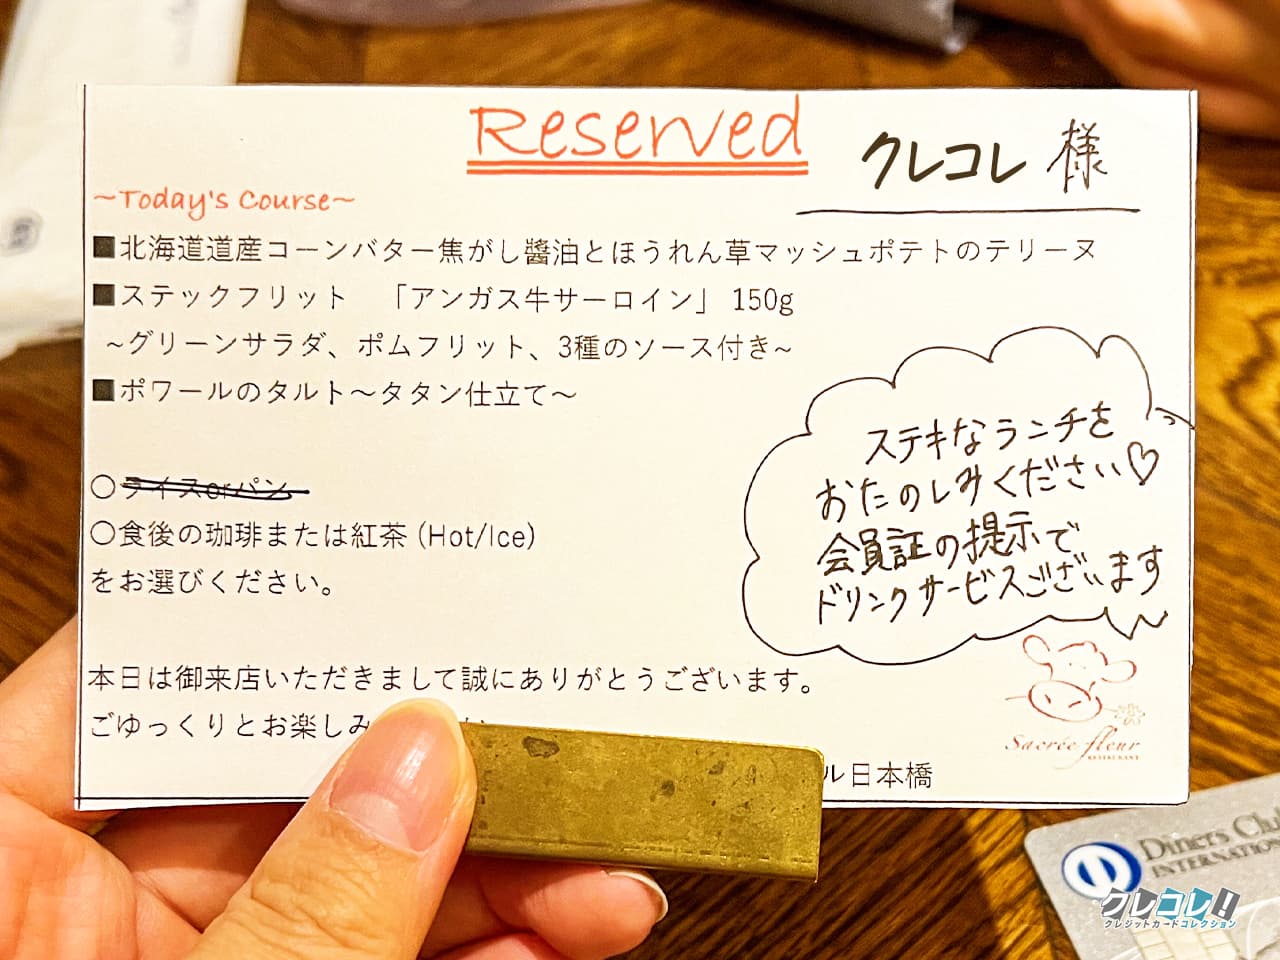 Reserved
クレコレ 様
~Today's Course~
■北海道道産コーンバター焦がし醬油とほうれん草マッシュポテトのテリーヌ
■ステックフリット 「アンガス牛サーロイン」 150g
~グリーンサラダ、ポムフリット、3種のソース付き~
■ポワールのタルト～タタン仕立て～
○ライスorパン
○食後の珈琲または紅茶 (Hot/Ice)
をお選びください。
ステキなランチを
おたのしみください♡
会員証の提示で
ドリンクサービスございます
本日は御来店いただきまして誠にありがとうございます。
ごゆっくりとお楽しみ
ル日本橋
Sacrée fleur
RESTAURANT
Diners Club
INTERNATIONAL
クレコレ!!
クレジットカードコレクション